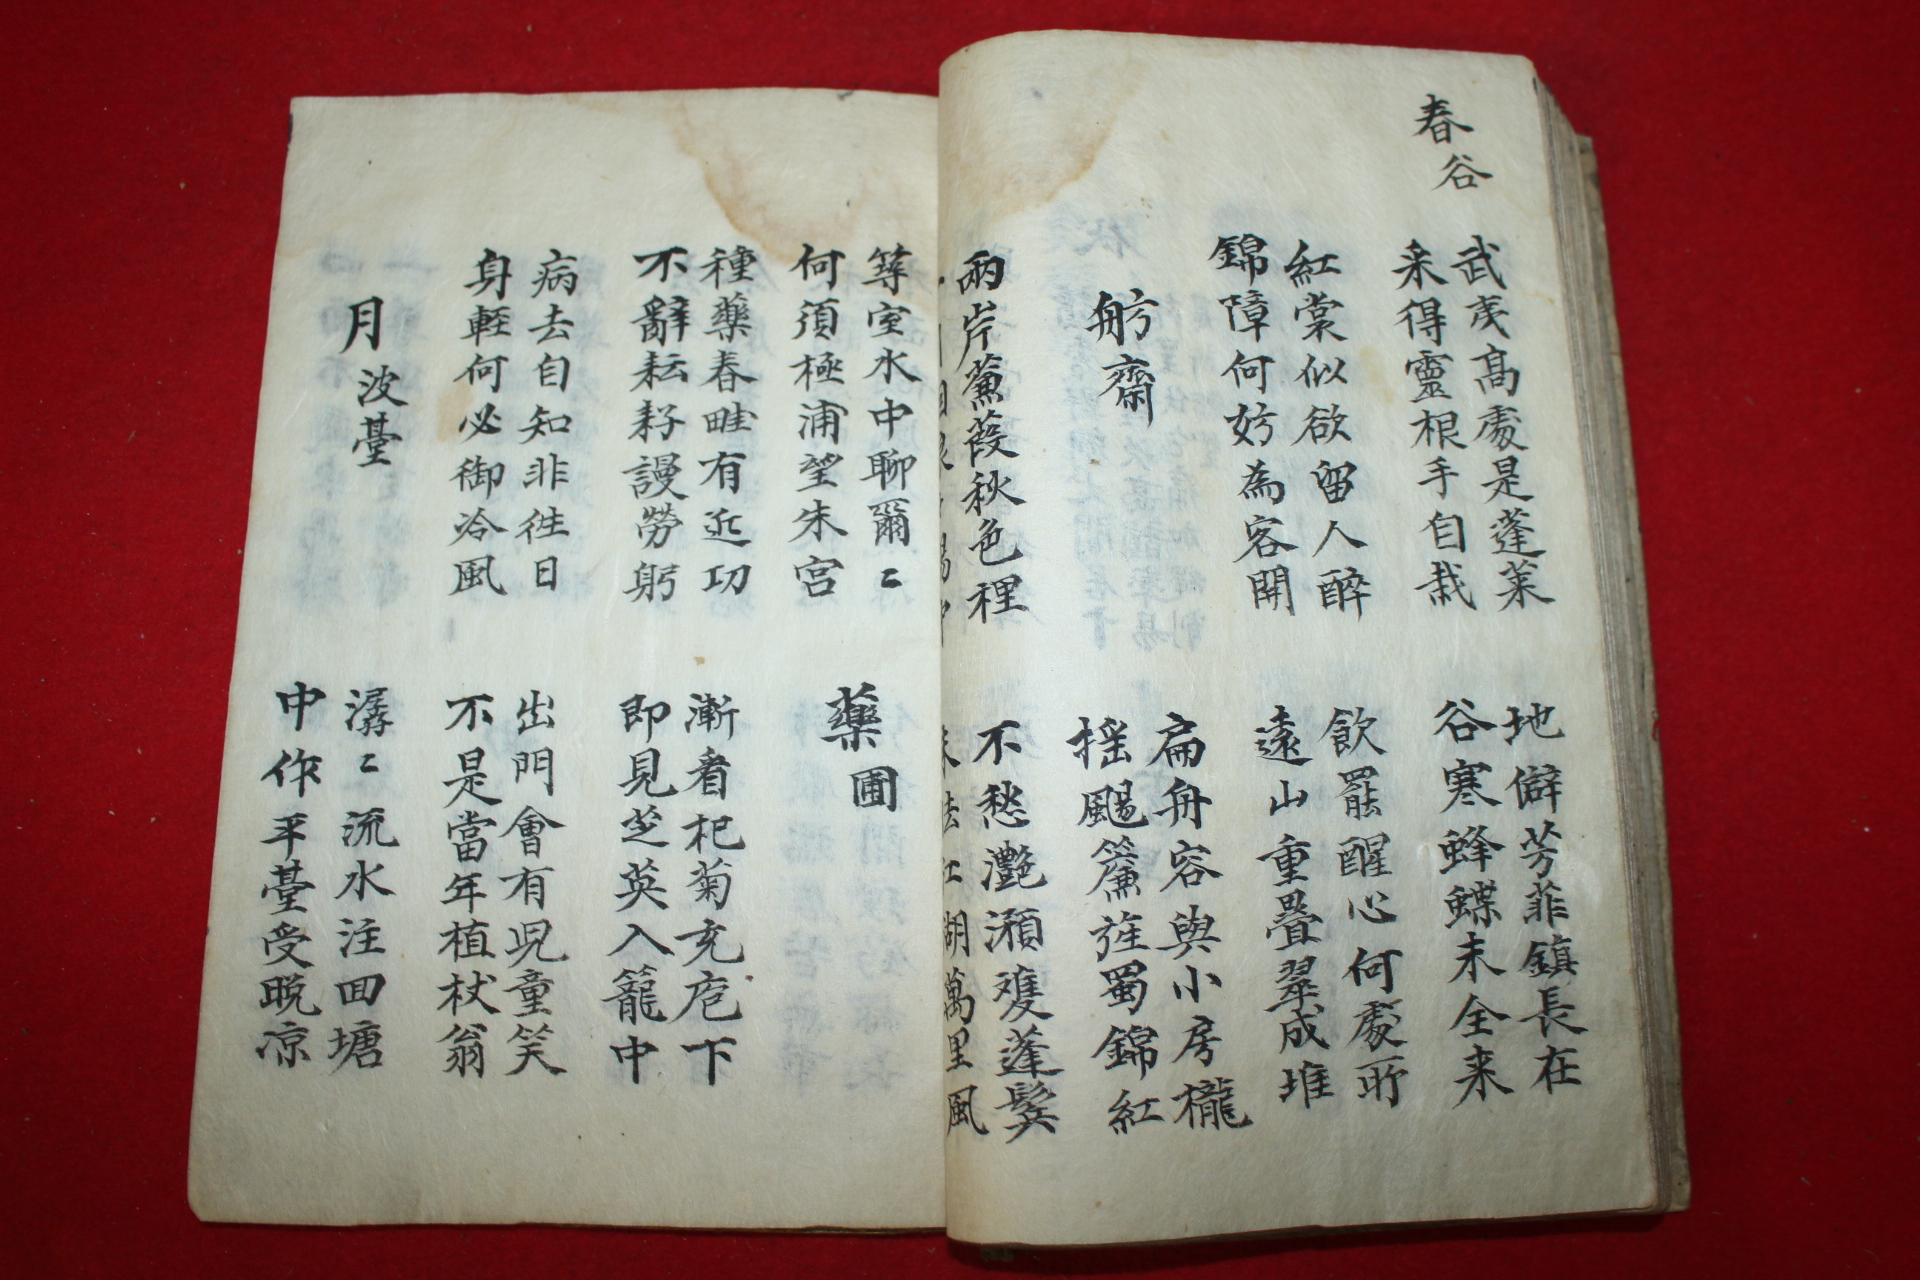 春谷
武夷高處是蓬萊
采得靈根手自栽
地僻芳菲鎮長在
谷寒蜂蝶未全来
紅裳似欲留人醉
錦障何妨為客開
飲罷醒心何處所
遠山重疊翠成堆
舫齋
扁舟容與小房櫳
揺颺簾旌蜀錦紅
兩岸薕葭秋色裡
不愁灔澦雙蓬鬂
湖萬里風
室水中聊爾〻
何須極浦望朱宮
藥圃
種藥春畦有近功
不辭耘耔謾勞躬
漸看杞菊充庖下
即見芝英入籠中
病去自知非徃日
身軽何必御冷風
出門會有児童笑
不是當年植杖翁
月波臺
潺〻流水注回塘
中作平臺受晩凉